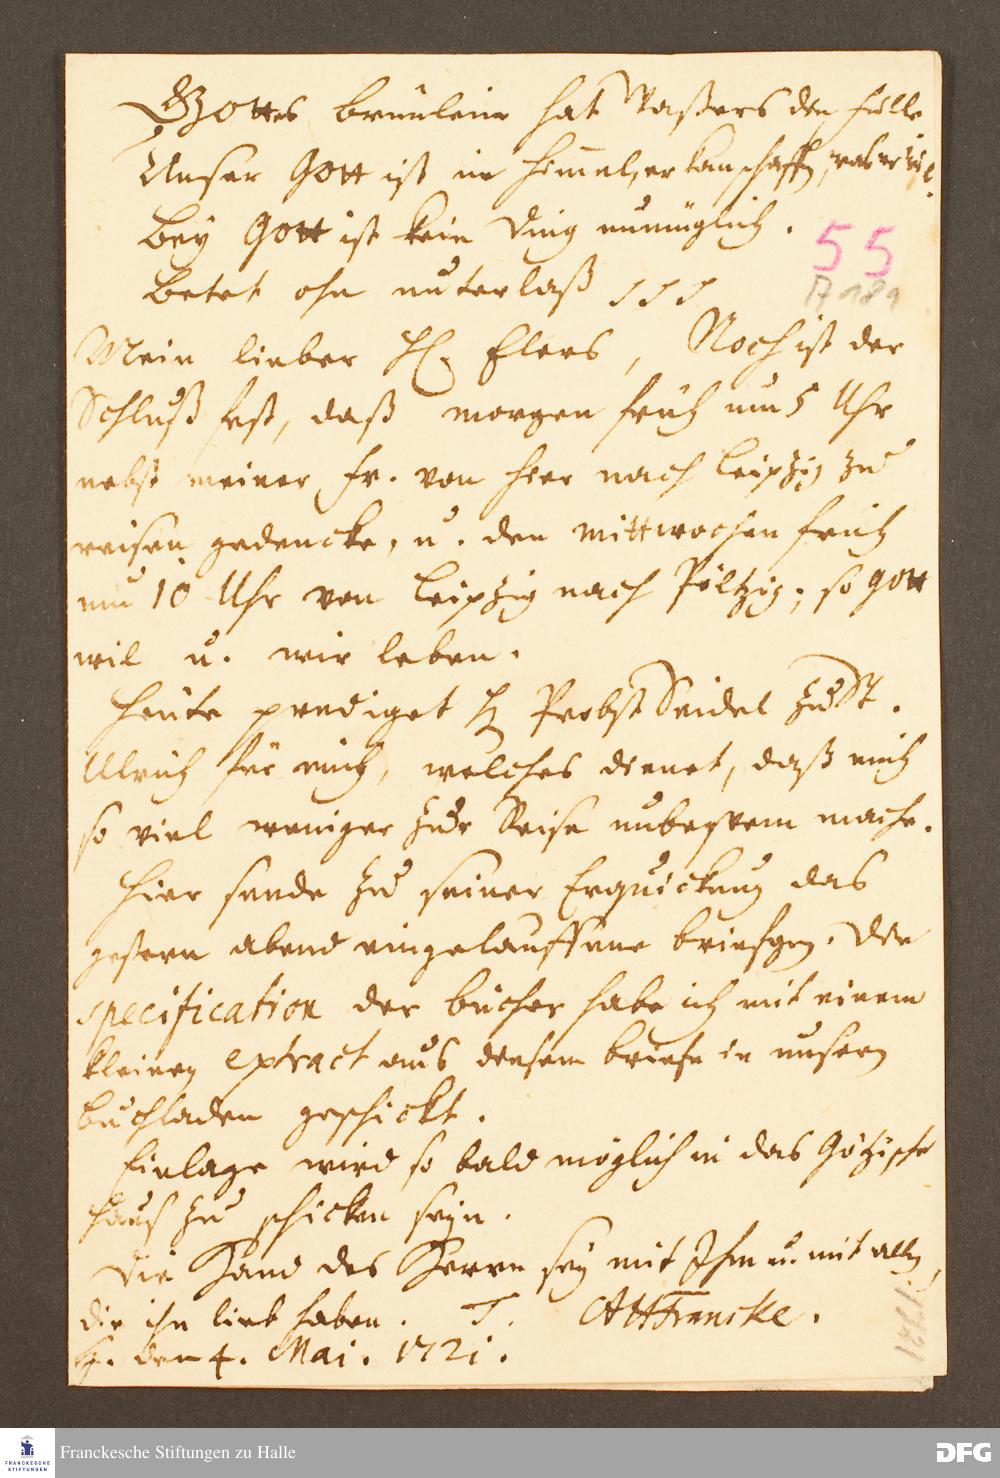 Gottes brünlein hat Waßers die fülle
Unser Gott ist im Himmel, er kan schaffen, was er wil.
Bey Gott ist kein Ding unmüglich.
Betet ohn unterlaß
55
A 189
Mein lieber H. Elers, Noch ist der
Schluß fest, daß morgen früh um 5 Uhr
nebst meiner Fr. von hier nach Leipzig zu
reisen gedencke, u. den Mittwochen früh
um 10 Uhr von Leipzig nach Pöltzig, so Gott
wil u. wir leben.
Heute prediget H. Probst Seidel zu St.
Ulrich für mich, welches dienet, daß mich
so viel weniger zur Reise unbeqvem mache.
Hier sende zu seiner Erquickung das
gestern abend eingelauffene briefgen. Die
specification der bücher habe ich mit einem
kleinen extract aus diesem briefe in unsern
buchladen geschickt.
Einlage wird so bald möglich in das Götzische
Haus zu schicken seyn.
Die Hand des Herrn sey mit Ihm u. mit allen,
die ihn lieb haben. T. AHFrancke.
H. den 4. Mai. 1721.
1721
FRANCKESCHE
STIFTUNGEN
Franckesche Stiftungen zu Halle
DFG